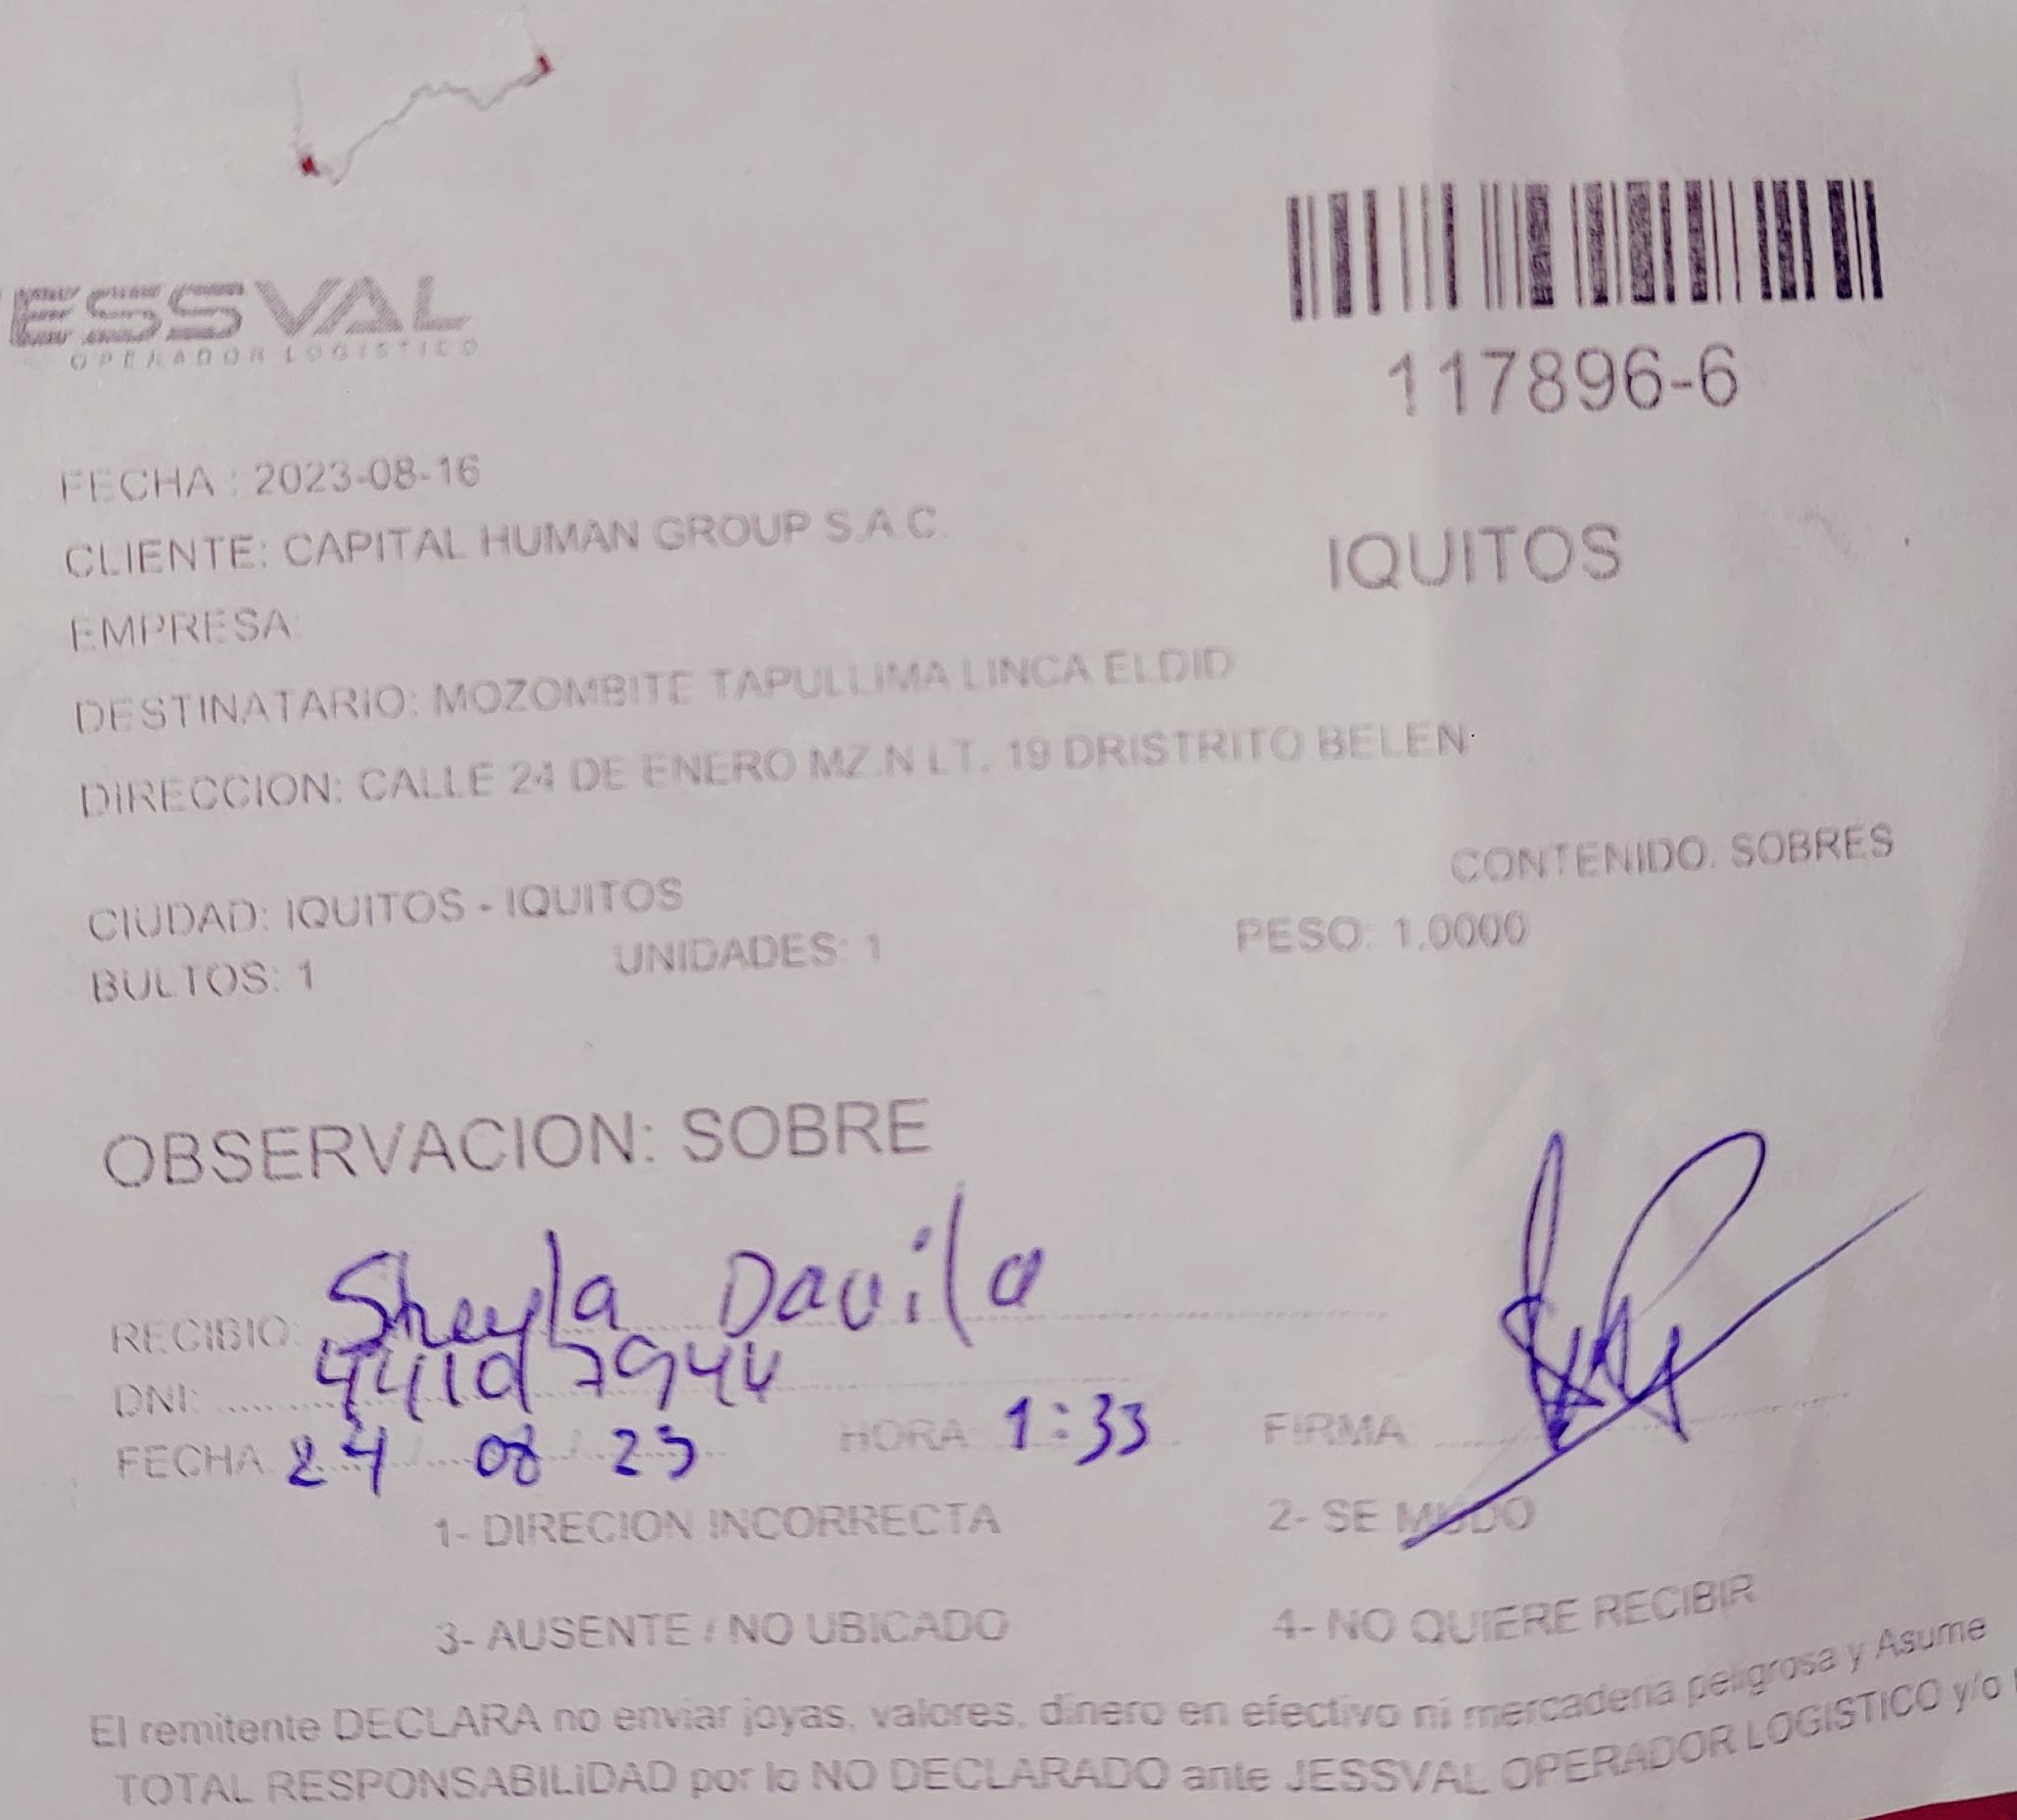 ESSVAL
OPERADOR LOGISTICO
117896-6
FECHA : 2023-08-16
CLIENTE: CAPITAL HUMAN GROUP S.A.C.
IQUITOS
EMPRESA:
DESTINATARIO: MOZOMBITE TAPULLIMA LINCA ELDID
DIRECCION: CALLE 24 DE ENERO MZ.N LT. 19 DRISTRITO BELEN
CONTENIDO: SOBRES
CIUDAD: IQUITOS - IQUITOS
BULTOS: 1 UNIDADES: 1 PESO: 1.0000
OBSERVACION: SOBRE
RECIBIO: Sheyla Davila
DNI:
FECHA: 24 / 08 / 23 HORA 1:33 FIRMA
1- DIRECION INCORRECTA 2- SE MUDO
3- AUSENTE / NO UBICADO 4- NO QUIERE RECIBIR
El remitente DECLARA no enviar joyas, valores, dinero en efectivo ni mercaderia peligrosa y Asume
TOTAL RESPONSABILIDAD por lo NO DECLARADO ante JESSVAL OPERADOR LOGISTICO y/o